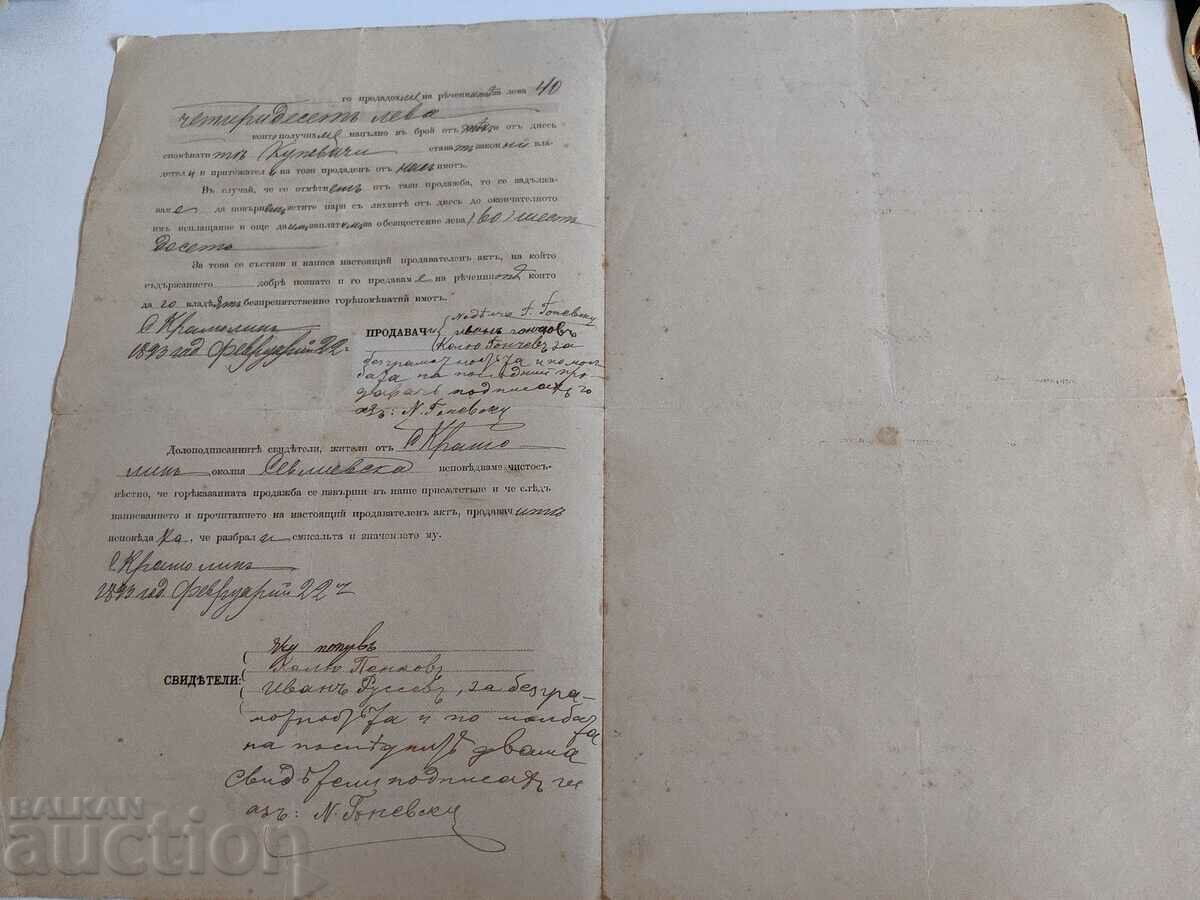 го продадохме на рѣчениятъ лева 40
четиридесетъ лева
които получихме напълно въ брой от тѣхъ от днесъ
споменати тѣ Купувачи ставатъ законни вла-
детели и притежатели на този продаден отъ насъ имотъ.
Въ случай, че се отмѣтнемъ отъ тази продажба, то се задължа-
ваме да повърнемъ истите пари съ лихвитѣ отъ днесъ до окончателното
имъ исплащание и още да имъ заплатимъ на обезщестение лева (60) шест
десетъ
За това се състави и написа настоящий продавателенъ актъ, на който
съдържанието добрѣ познато и го предаваме на рѣчениятъ които
да го владеятъ безпрепятствено горѣпоменатий имотъ.
с. Крамолинъ
1893 год Февруарий 22
ПРОДАВАЧИ
Иванъ
Колю Гончевъ за
безграмотностьта и по мол-
бата на последний про-
давачъ подписахъ го
азъ: Н. Гоневски
Долоподписанитѣ свидѣтели, жители отъ с. Крамо
линъ околия Севлиевска исповѣдваме чистосъ-
вѣстно, че горѣказанната продажба се извърши въ наше присѫтствие и че слѣдъ
написванието и прочитанието на настоящий продавателенъ актъ, продавачитѣ
исповѣдаха, че разбрали смисълътъ и значението му.
с. Крамолинъ
1893 год. Февруарий 22
поповъ
Колю Панковъ
СВИДѢТЕЛИ:
Иванъ Руссевъ, за безгра-
мотностьта и по молбата
на последнитѣ двама
свидѣтели подписахъ ги
азъ: Н. Гоневски
BALKAN
auction